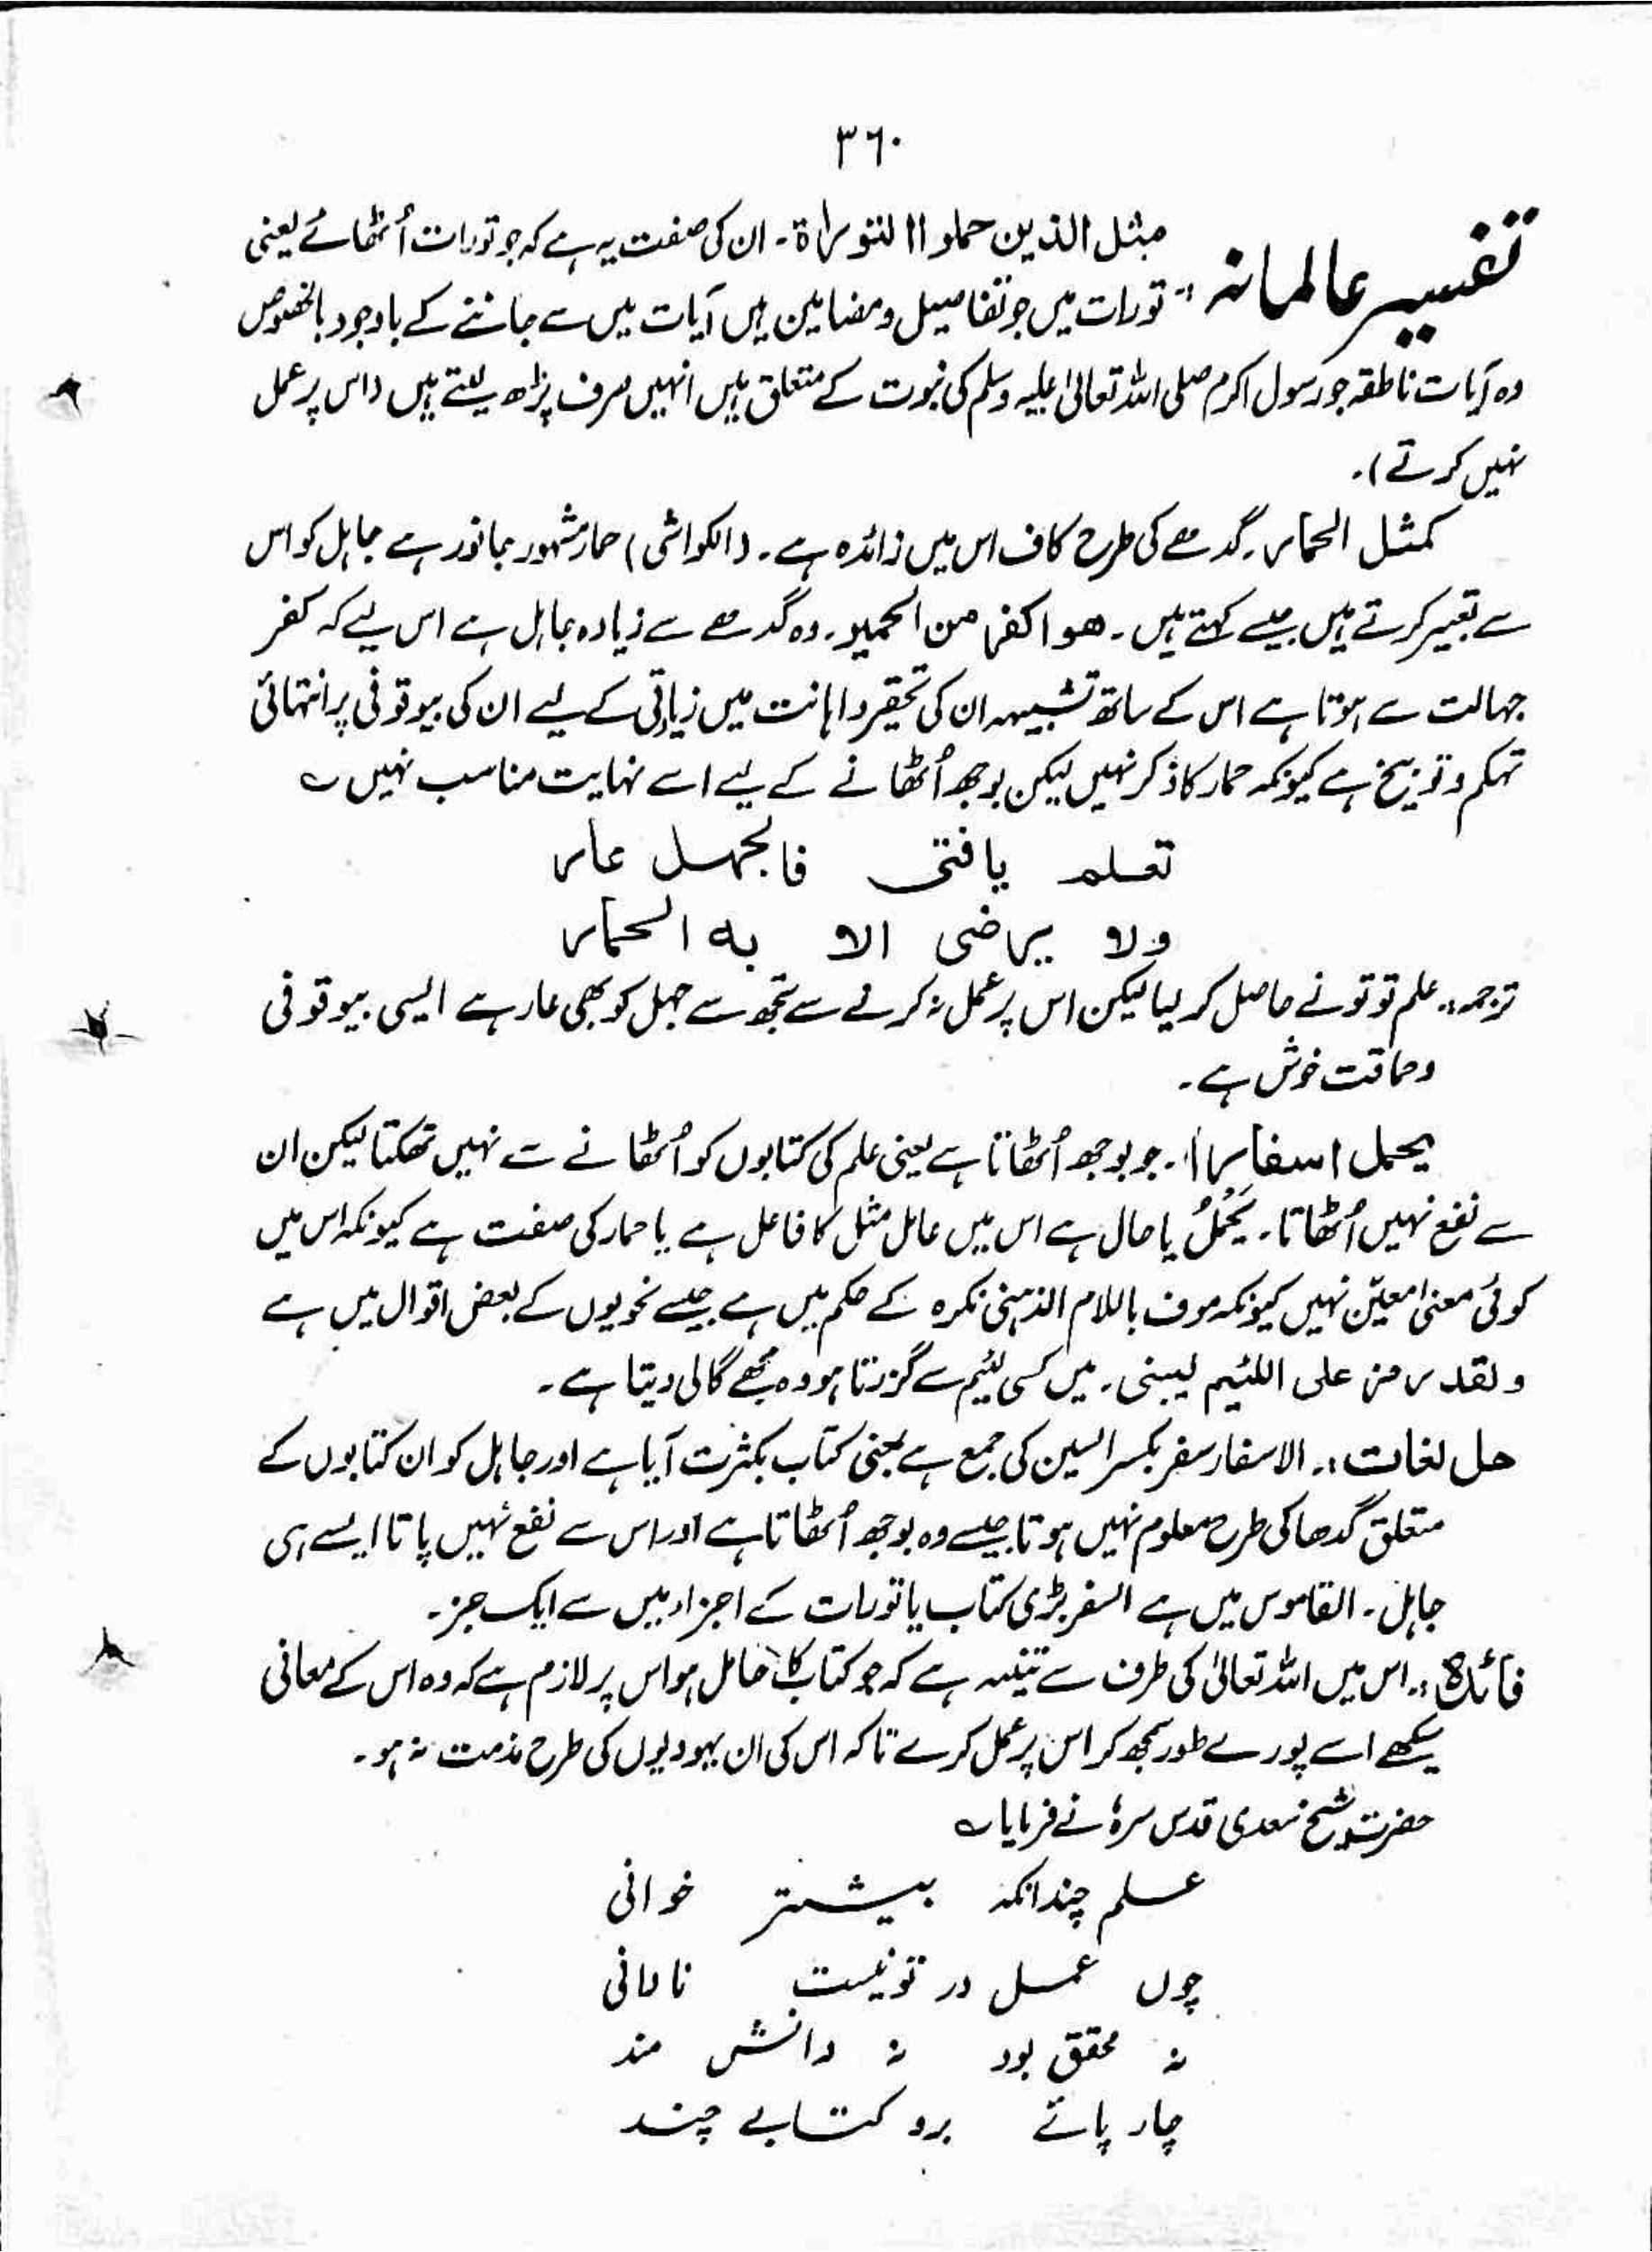 ٣٦٠
تفسیر عالمانہ :- مثل الذین حملوا التوراة ۔ ان کی صفت یہ ہے کہ جو تورات اُٹھائے یعنی
تورات میں جو تفاصیل و مضامین ہیں آیات میں سے جاننے کے باوجود بالخصوص
وہ آیات ناطقہ جو رسول اکرم صلی اللہ تعالیٰ علیہ وسلم کی نبوت کے متعلق ہیں انہیں صرف پڑھ لیتے ہیں (اس پر عمل
نہیں کرتے)۔
کمثل الحمار۔ گدھے کی طرح کاف اس میں زائدہ ہے۔ (الکواشی) حمار مشہور جانور ہے جاہل کو اس
سے تعبیر کرتے ہیں جیسے کہتے ہیں۔ ھو اکفر من الحمیر۔ وہ گدھے سے زیادہ جاہل ہے اس لیے کہ کفر
جہالت سے ہوتا ہے اس کے ساتھ تشبیہہ ان کی تحقیر و اہانت میں زیادتی کے لیے ان کی بیوقوفی پر انتہائی
تہکم و توبیخ ہے کیونکہ حمار کا ذکر نہیں لیکن بوجھ اُٹھانے کے لیے اسے نہایت مناسب نہیں ؎
تعلم یا فتی فالجهل عار
ولا یرضی الا به الحمار
ترجمہ:۔ علم تو تو نے حاصل کر لیا لیکن اس پر عمل نہ کرنے سے تجھ سے جہل کو بھی عار ہے ایسی بیوقوفی
و حماقت خوش ہے۔
یحمل اسفارا۔ جو بوجھ اُٹھاتا ہے یعنی علم کی کتابوں کو اُٹھانے سے نہیں تھکتا لیکن ان
سے نفع نہیں اُٹھاتا۔ یَحْمِلُ یا حال ہے اس میں عامل مثل کا فاعل ہے یا حمار کی صفت ہے کیونکہ اس میں
کوئی معنیٰ معیّن نہیں کیونکہ موف باللام الذہنی نکرہ کے حکم میں ہے جیسے نحویوں کے بعض اقوال میں ہے
ولقد رمن علی اللئیم لیبنی۔ میں کسی لئیم سے گزرتا ہو وہ مجھے گالی دیتا ہے۔
حل لغات:۔ الاسفار سفر بکسر السین کی جمع ہے بمعنی کتاب بکثرت آیا ہے اور جاہل کو ان کتابوں کے
متعلق گدھا کی طرح معلوم نہیں ہوتا جیسے وہ بوجھ اُٹھاتا ہے اور اس سے نفع نہیں پاتا ایسے ہی
جاہل۔ القاموس میں ہے السفر بڑی کتاب یا تورات کے اجزاء میں سے ایک جز۔
فائدہ:۔ اس میں اللہ تعالیٰ کی طرف سے تنبیہ ہے کہ جو کتاب کا حامل ہو اس پر لازم ہے کہ وہ اس کے معانی
سیکھے اسے پورے طور سمجھ کر اس پر عمل کرے تاکہ اس کی ان یہودیوں کی طرح مذمت نہ ہو۔
حضرت شیخ سعدی قدس سرہٗ نے فرمایا ؎
علم چندانکہ بیشتر خوانی
چوں عمل در تو نیست نادانی
نہ محقق بود نہ دانش مند
چار پائے برو کتابے چند